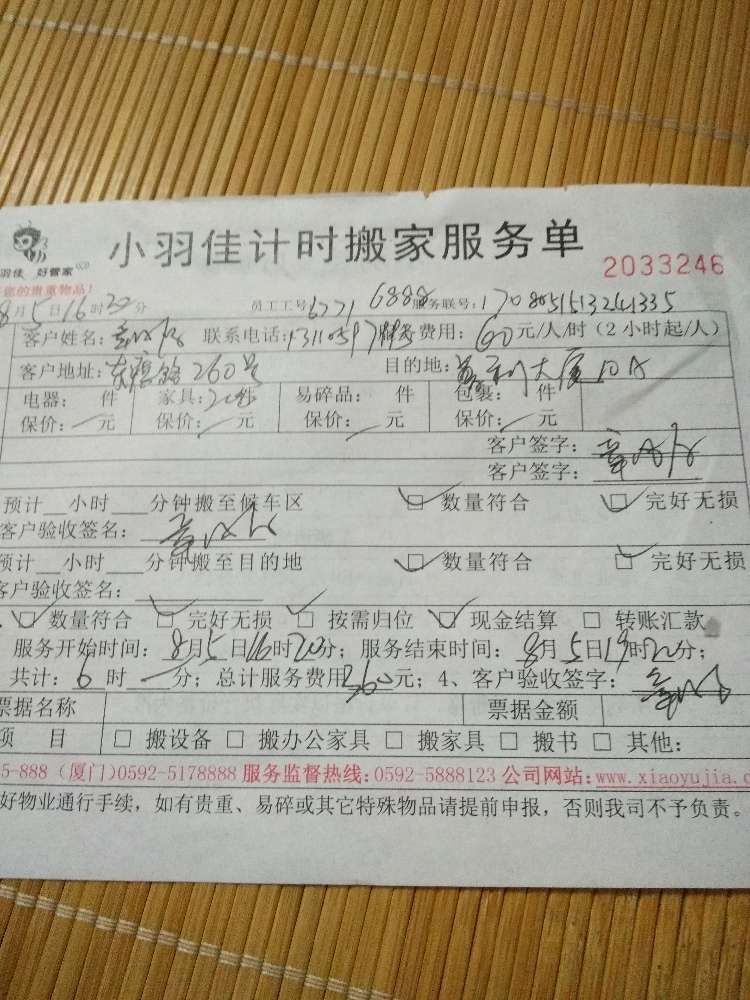 小羽佳计时搬家服务单
羽佳 好管家 2033246
您的贵重物品!
8月5日16时20分 员工工号:6271 6888 服务联号:1708051513241335
客户姓名: 联系电话: 服务费用:60元/人/时(2小时起/人)
客户地址: 260号 目的地: 大厦10A
电器: 件 家具: 件 易碎品: 件 包裹: 件
保价: 元 保价: 元 保价: 元 保价: 元
客户签字:
客户签字:
预计 小时 分钟搬至候车区 □ 数量符合 □ 完好无损
客户验收签名:
预计 小时 分钟搬至目的地 □ 数量符合 □ 完好无损
客户验收签名:
□ 数量符合 □ 完好无损 □ 按需归位 □ 现金结算 □ 转账汇款
服务开始时间: 8月5日16时20分; 服务结束时间: 8月5日19时20分;
共计: 6时 分; 总计服务费用360元; 4、客户验收签字:
票据名称 票据金额
项 目 □ 搬设备 □ 搬办公家具 □ 搬家具 □ 搬书 □ 其他:
5-888 (厦门)0592-5178888 服务监督热线:0592-5888123 公司网站:www.xiaoyujia.c
好物业通行手续,如有贵重、易碎或其它特殊物品请提前申报,否则我司不予负责。